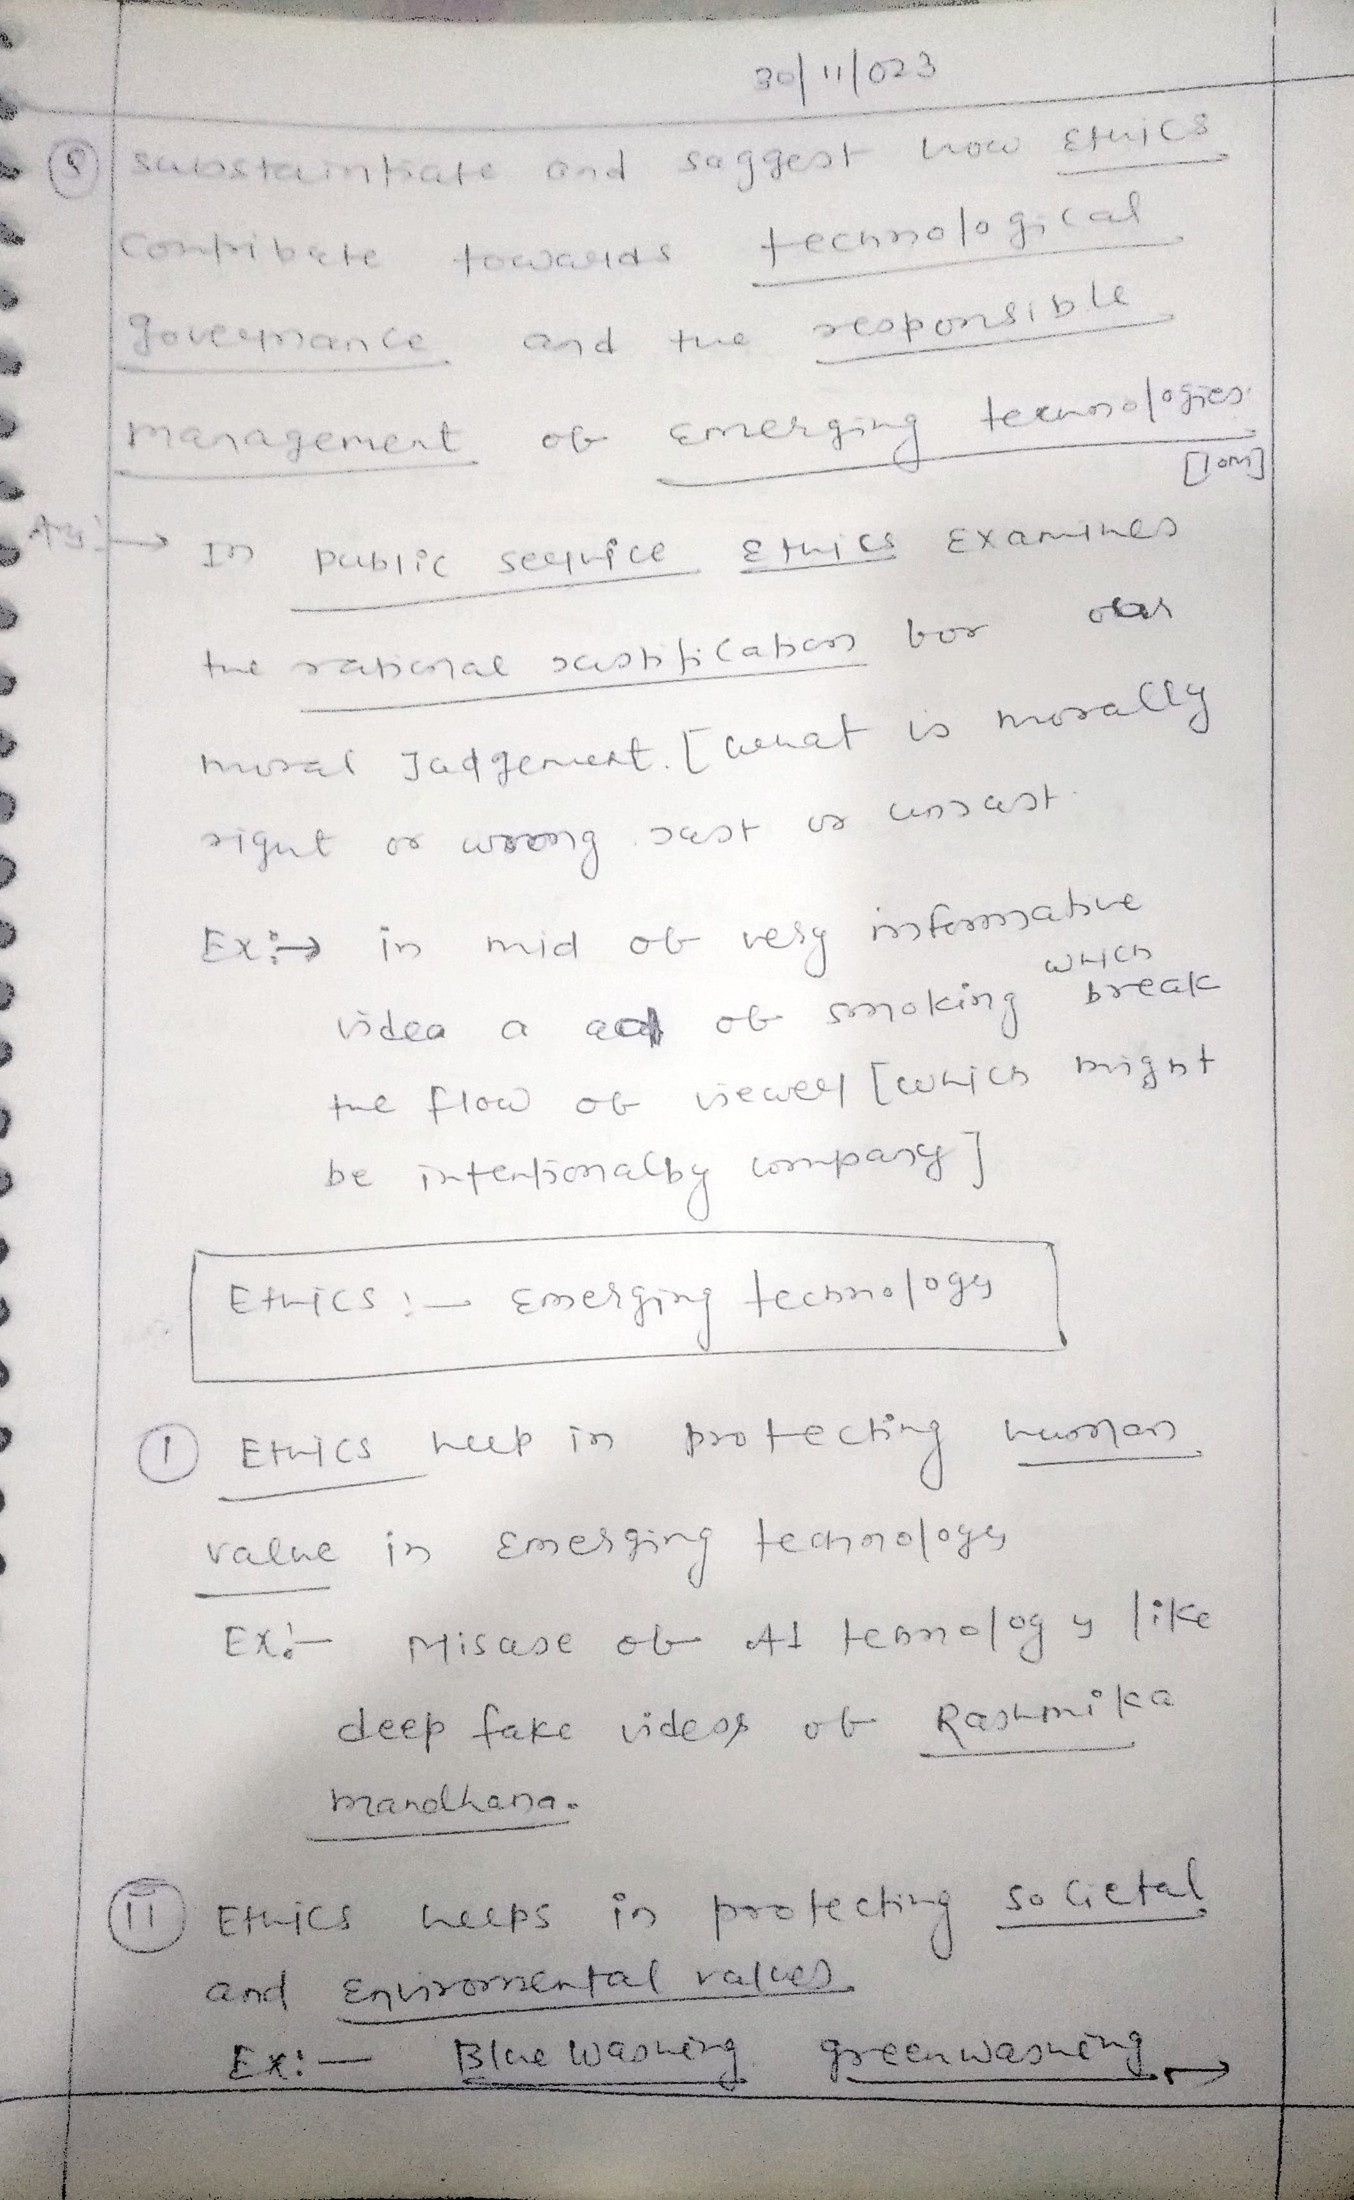 30/11/023
Q substaintiate and suggest how Ethics
contribute towards technological
governance and the responsible
management of Emerging technologies.
[10m]
Ans:→ In public service Ethics Examines
the rational justification for our
moral Judgement. [what is morally
right or wrong just or unjust.
Ex:→ in mid of very informative
video a add of smoking which break
the flow of viewer [which might
be intentionalby company]
Ethics :— Emerging technology
(1) Ethics help in protecting human
value in Emerging technology
Ex:— Misuse of AI tehnology like
deep fake videos of Rashmika
mandhana.
(II) Ethics helps in protecting societal
and Enviromental values.
Ex:— Blue washing greenwashing →